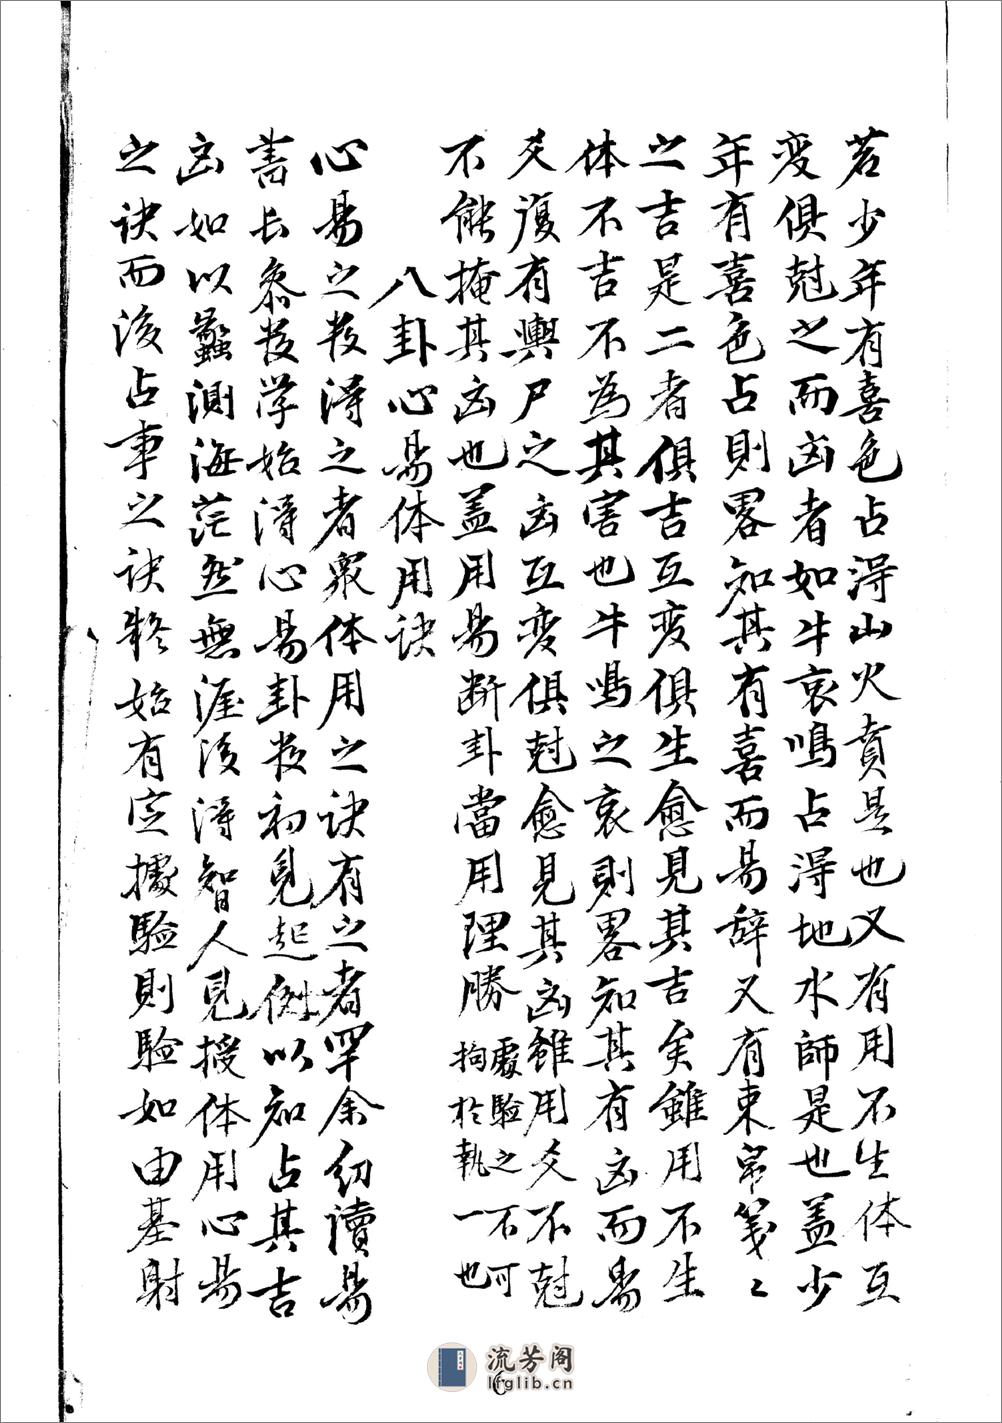 若少年有喜色占淂山火賁是也又有用不生体互
变俱尅之而凶者如牛哀鳴占淂地水師是也盖少
年有喜色占則畧知其有喜而易辞又有束帛箋〻
之吉是二者俱吉互变俱生愈見其吉矣雖用不生
体不吉不為其害也牛鳴之哀則畧知其有凶而易
爻復有輿尸之凶互变俱尅愈見其凶雖用爻不尅
不能掩其凶也盖用易断卦當用理勝處驗之不可
拘於執一也
八卦心易体用訣
心易之数淂之者衆体用之訣有之者罕余幼讀易
書長叅数学始淂心易卦数初見起例以知占其吉
凶如以蠡測海茫然無涯後淂智人見授体用心易
之訣而後占事之訣終始有定據驗則驗如由基射
流芳阁
lfglib.cn
6